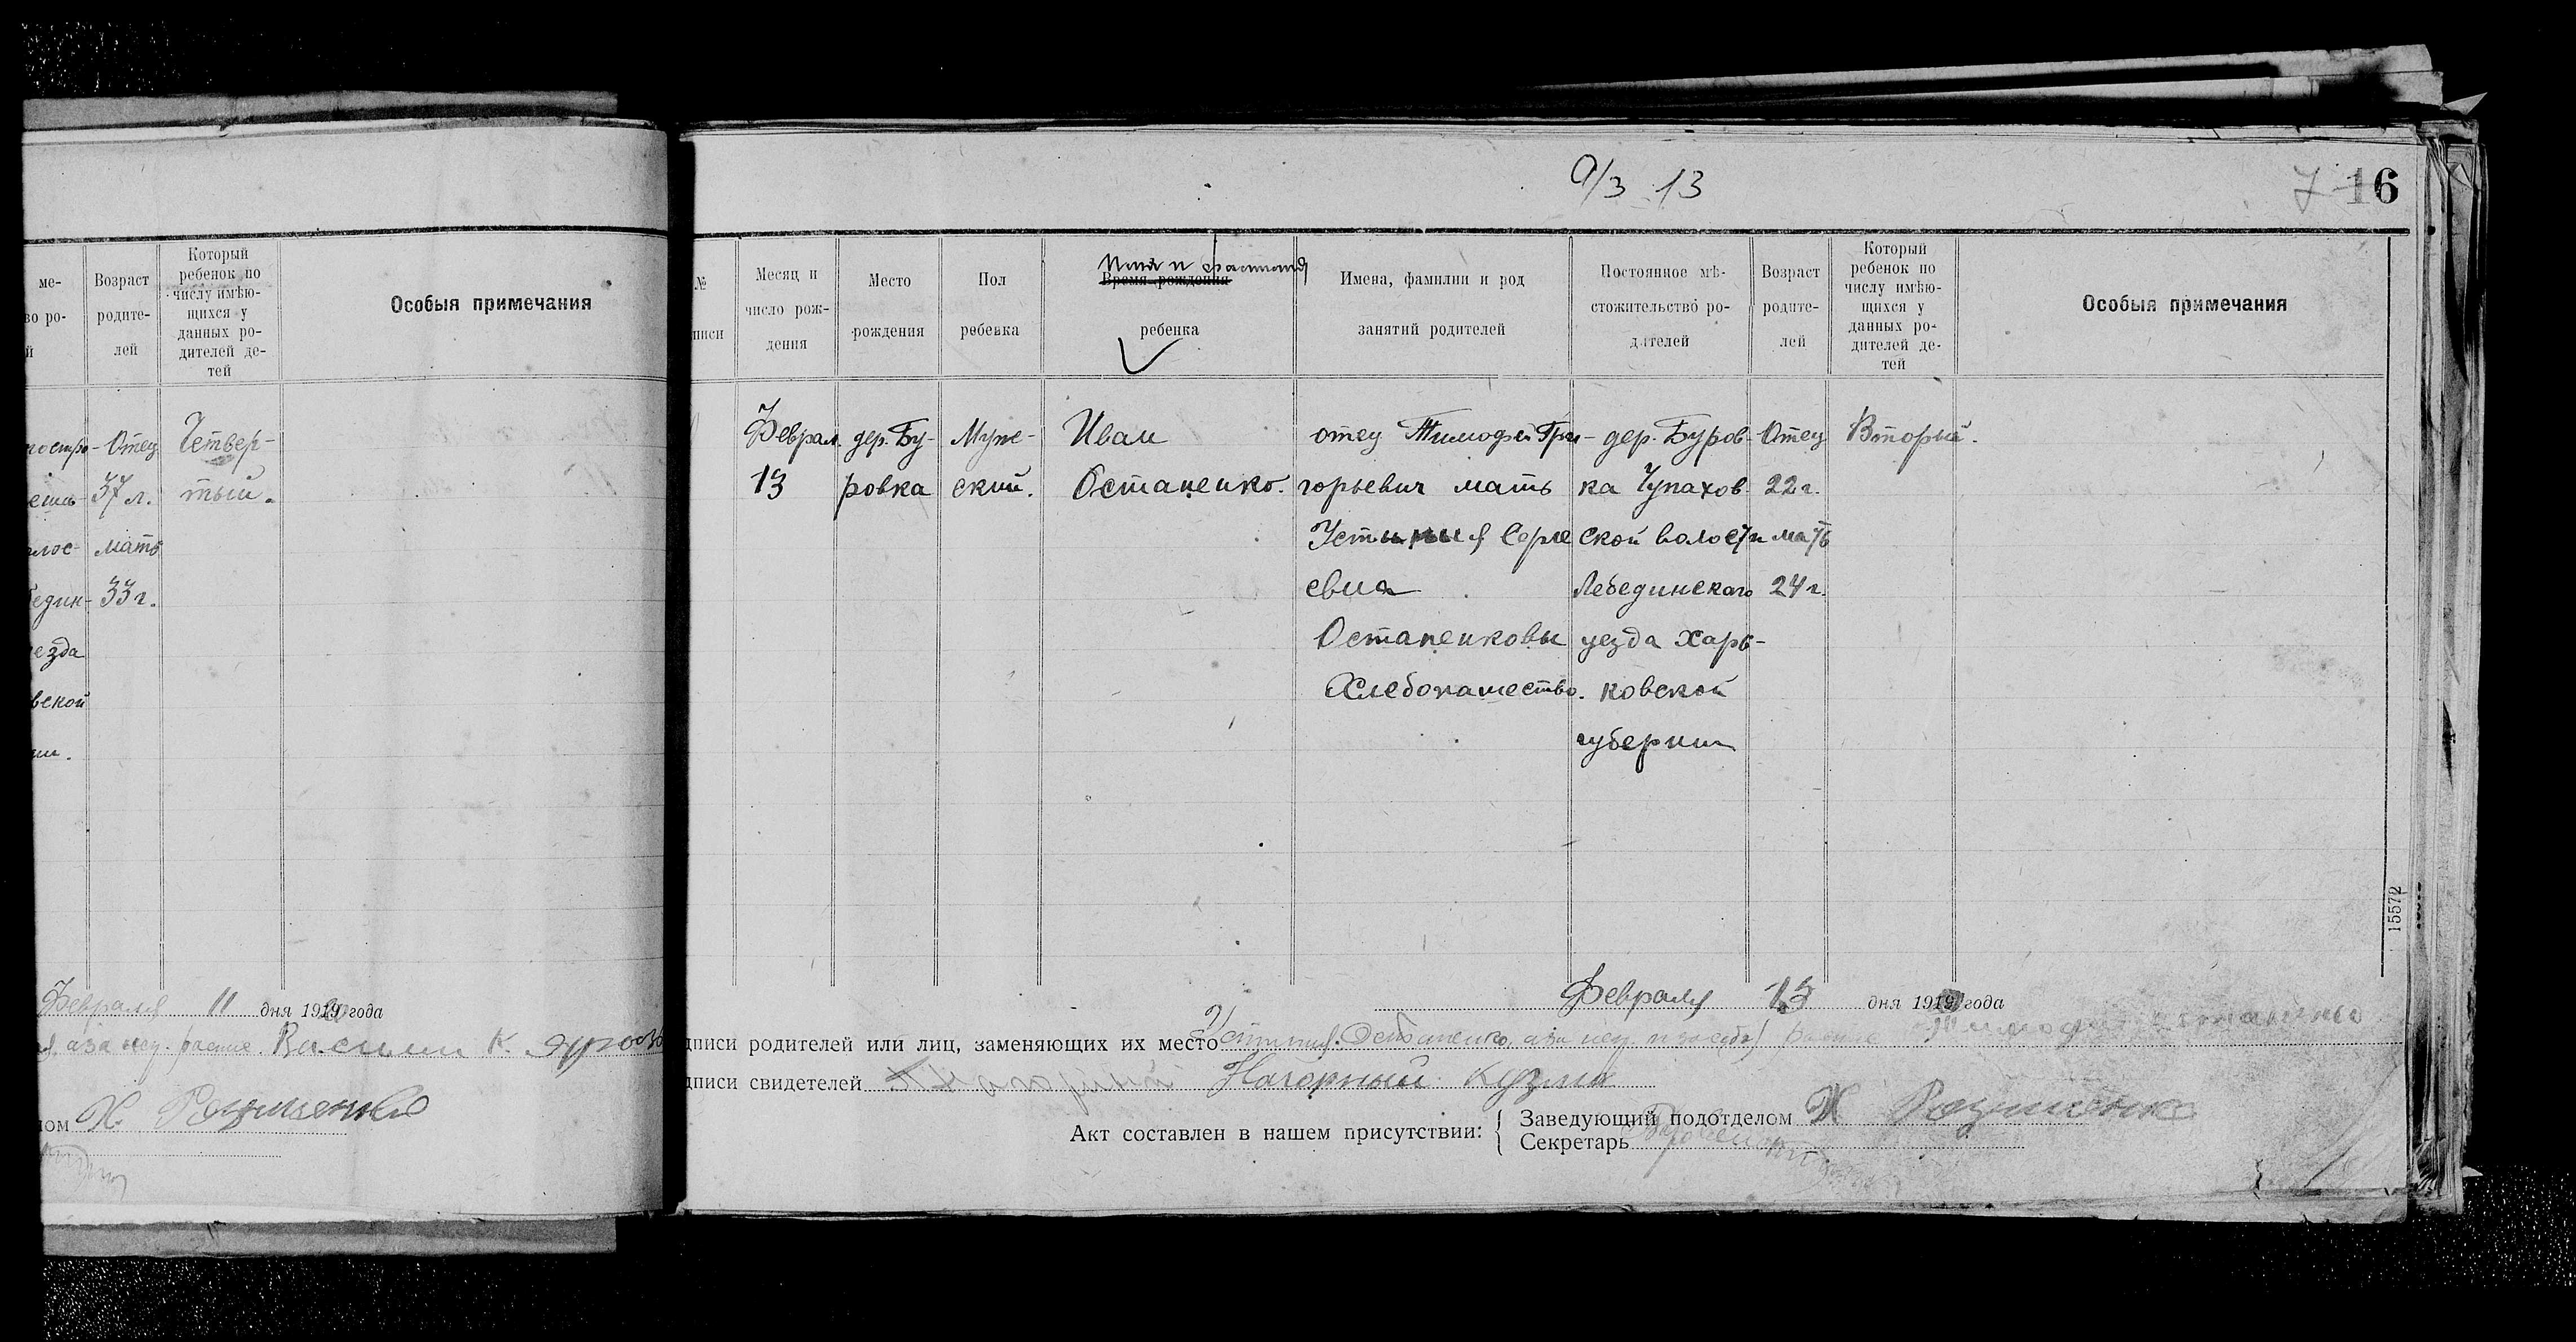 ме-
во ро-
й
Возраст
родите-
лей
Который
ребенок по
числу имѣю-
щихся у
данных ро-
дителей де-
тей
Особыя примечания
Отец
37 л.
мать
33 г.
Четвер-
тый.
един-
езда
вской
Февраля 11 дня 1919 года
Василий К.
9/3 13
7 16
№
писи
Месяц и
число рож-
дения
Место
рождения
Пол
ребенка
Имя и фамилия
Время рождения
ребенка
Имена, фамилии и род
занятий родителей
Постоянное мѣ-
стожительство ро-
дителей
Возраст
родите-
лей
Который
ребенок по
числу имѣю-
щихся у
данных ро-
дителей де-
тей
Особыя примечания
Феврал.
13
дер. Бу-
ровка
Муже-
ский.
Иван
Остапенко.
отец Тимофей Гри-
горьевич мать
Устиния Серге
евна
Остапенковы
Хлебопашество.
дер. Буров-
ка Чупахов
ской волости
Лебединскаго
уезда Харь-
ковской
губернии
Отец
22 г.
мать
24 г.
Второй.
15572
Февраля 13 дня 1919 года
дписи родителей или лиц, заменяющих их место Устиния Остапенко
дписи свидетелей Нагорный Кузма
Акт составлен в нашем присутствии:
Заведующий подотделом
Секретарь